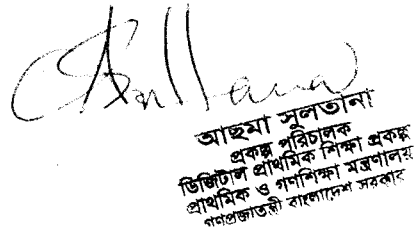 আছমা সুলতানা
প্রকল্প পরিচালক
ডিজিটাল প্রাথমিক শিক্ষা প্রকল্প
প্রাথমিক ও গণশিক্ষা মন্ত্রণালয়
গণপ্রজাতন্ত্রী বাংলাদেশ সরকার